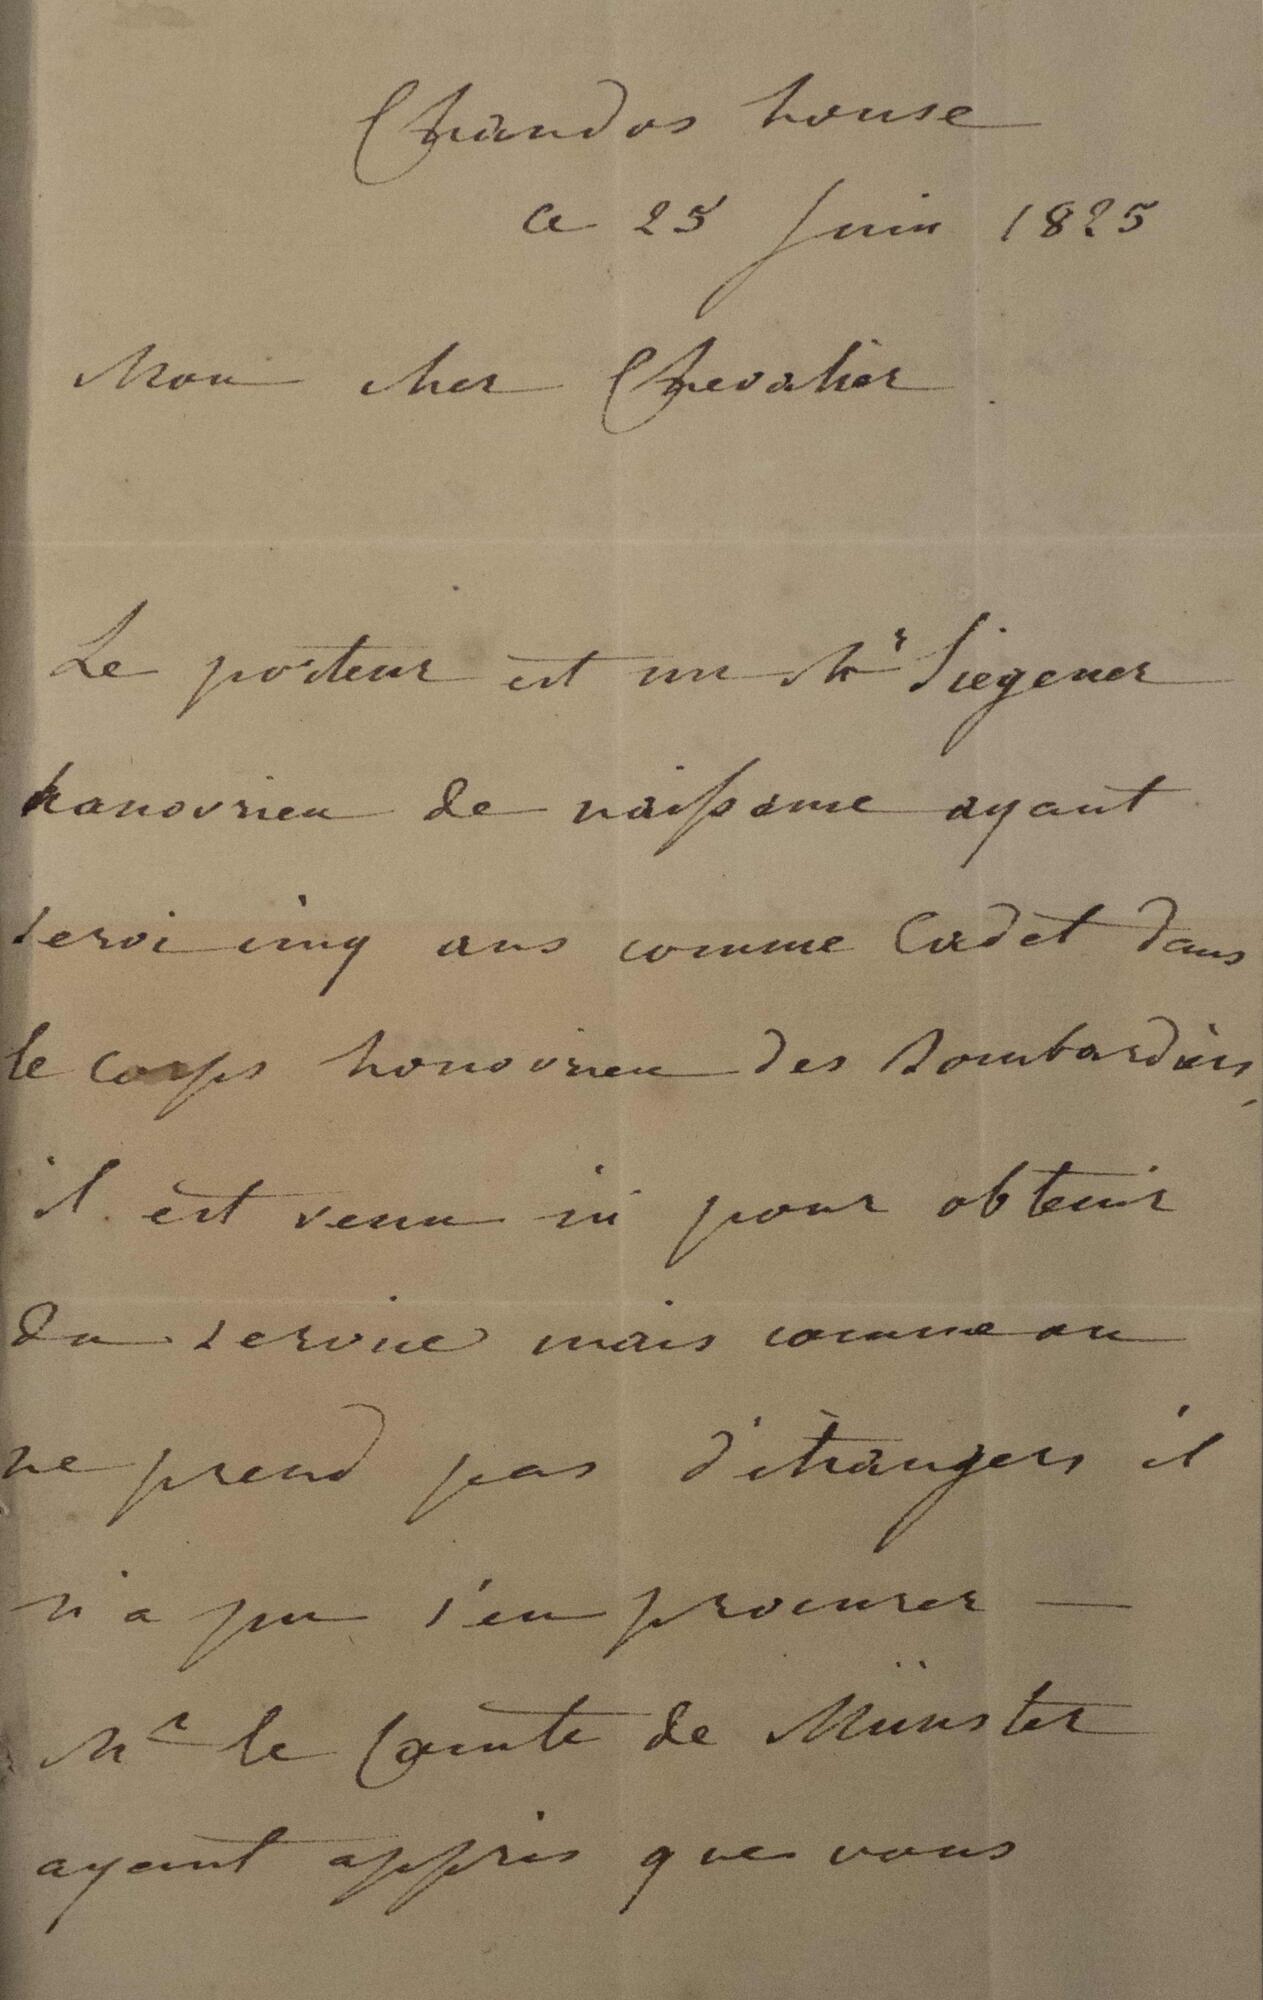 Chandos house
ce 25 Juin 1825
Mon cher Chevalier
Le porteur est un Mr Siegener
hanovrien de naissance ayant
servi cinq ans comme Cadet dans
le corps hanovrien des Bombardiers,
il est venu ici pour obtenir
du service mais comme on
ne prend pas d'étrangers il
n'a pu s'en procurer —
Mr le Comte de Münster
ayant appris que vous